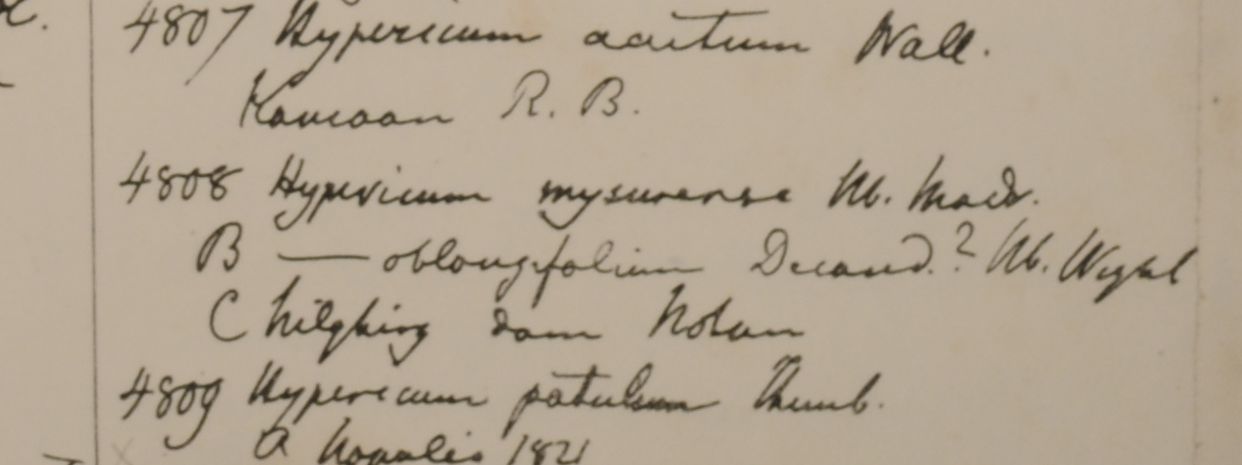 4807 Hypericum acutum Wall.
Kamaon R. B.
4808 Hypericum mysurense Hb. Madr.
B — oblongifolium Decand.? Hb. Wight
C Nilghiry dom Noton
4809 Hypericum patulum Thunb.
a Napalia 1821